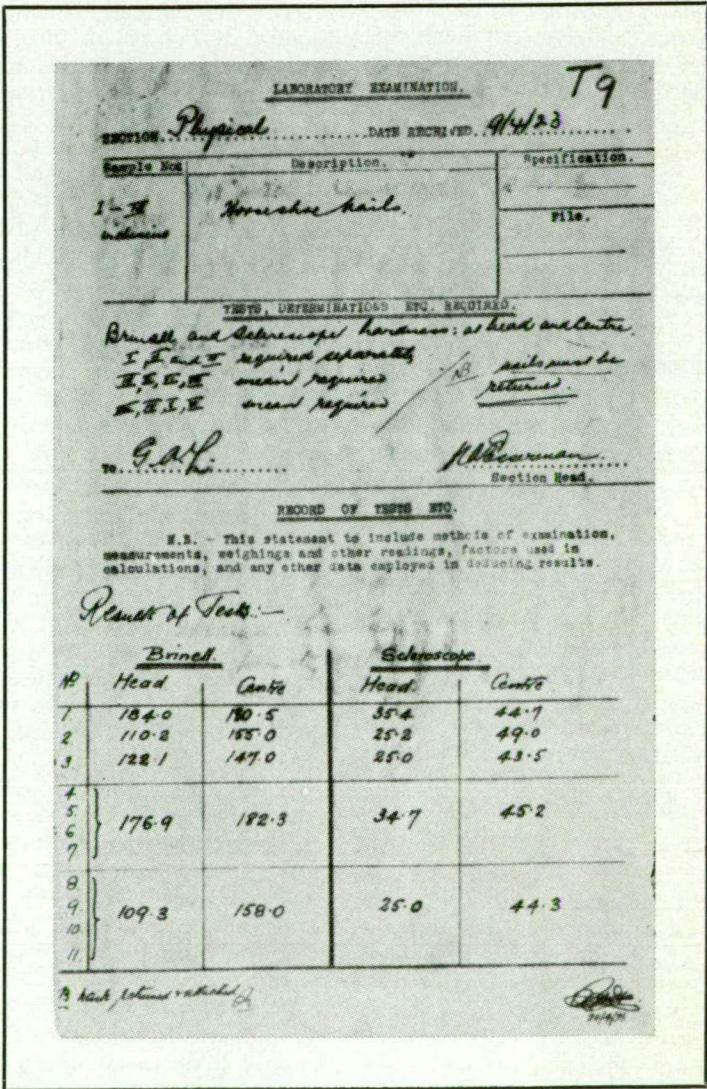 LABORATORY EXAMINATION.
T9
SECTION. Physical DATE RECEIVED. 9/4/23
Sample Nos Description. Specification.
I - Horseshoe nails.
inclusive
File.
TESTS, DETERMINATIONS ETC. REQUIRED.
Brinell and Scleroscope hardness: at head and Centre.
I, II and required separately
mean required
mean required
NB nails must be
returned.
To
Section Head.
RECORD OF TESTS ETC.
N.B. - This statement to include methods of examination,
measurements, weighings and other readings, factors used in
calculations, and any other data employed in deducing results.
Result of Tests:-
Brinell. Scleroscope
No Head Centre Head. Centre
1. 184.0 180.5 35.4 44.7
2. 110.2 155.0 25.2 49.0
3. 122.1 147.0 25.0 43.5
4
5.
6
7
176.9 182.3 34.7 45.2
8.
9.
10.
11.
109.3 158.0 25.0 44.3
returned & attached